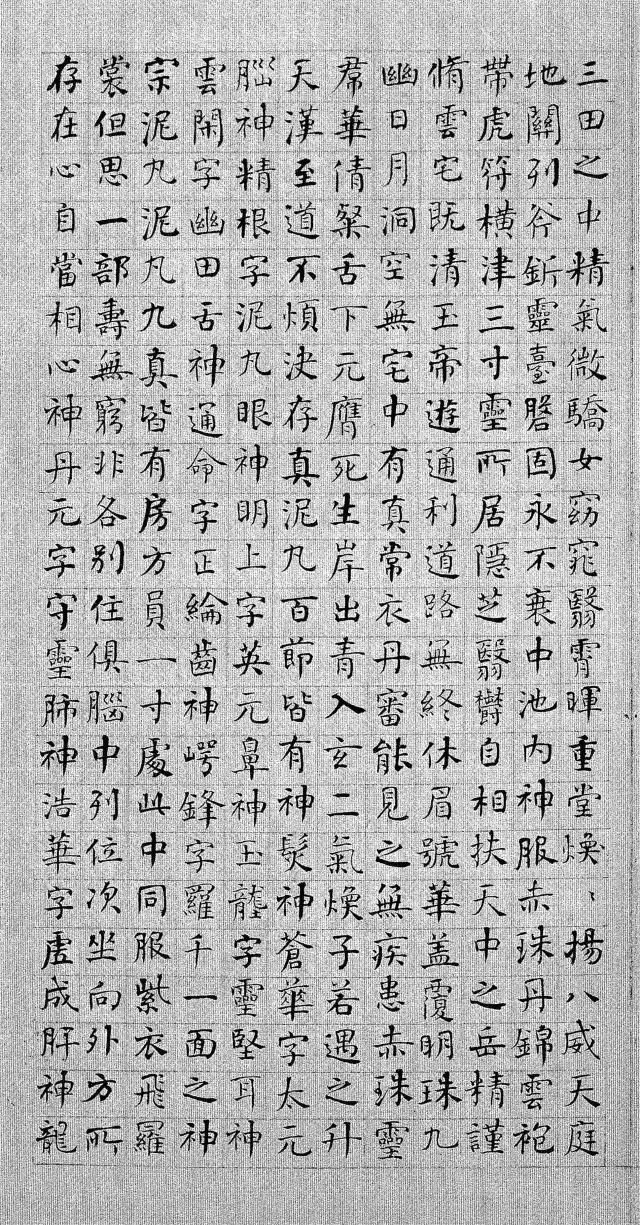 三田之中精氣微驕女窈窕翳霄暉重堂煥〻揚八威天庭
地關列斧釿靈臺磐固永不衰中池内神服赤珠丹錦雲袍
帶虎符橫津三寸靈所居隱芝翳欝自相扶天中之岳精謹
脩雲宅既清玉帝遊通利道路無終休眉號華盖覆明珠九
幽日月洞空無宅中有真常衣丹審能見之無疾患赤珠靈
帬華倩粲舌下元膺死生岸出青入玄二氣煥子若遇之升
天漢至道不煩決存真泥丸百節皆有神髮神蒼華字太元
腦神精根字泥丸眼神明上字英元鼻神玉壟字靈堅耳神
雲閑字幽田舌神通命字正綸齒神崿鋒字羅千一面之神
宗泥丸泥丸九真皆有房方員一寸處此中同服紫衣飛羅
裳但思一部壽無窮非各別住俱腦中列位次坐向外方所
存在心自當相心神丹元字守靈肺神浩華字虛成肝神龍